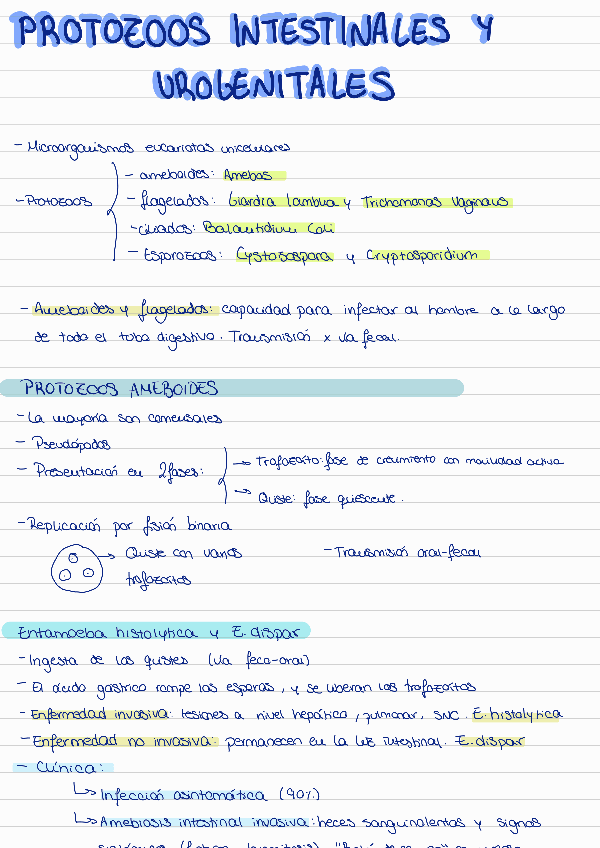 PROTOZOOS INTESTINALES Y
UROGENITALES
- Microorganismos eucariotas unicelulares
- Protozoos
- ameboides: Amebas
- flagelados: Giardia lamblia y Trichomonas Vaginalis
- ciliados: Balantidium Coli
- Esporozoos: Cystoisospora y Cryptosporidium
- Ameboides y flagelados: capacidad para infectar al hombre a lo largo
de todo el tubo digestivo. Transmisión x vía fecal.
PROTOZOOS AMEBOIDES
- La mayoría son comensales
- Pseudópodos
- Presentación en 2 fases:
→ Trofozoíto: fase de crecimiento con movilidad activa
→ Quiste: fase quiescente.
- Replicación por fisión binaria
→ Quiste con varios
trofozoítos
- Transmisión oral-fecal
Entamoeba histolytica y E. dispar
- Ingesta de los quistes (vía feco-oral)
- El ácido gástrico rompe las esporas, y se liberan los trofozoítos
- Enfermedad invasiva: lesiones a nivel hepático, pulmonar, SNC. E. histolytica
- Enfermedad no invasiva: permanecen en la luz intestinal. E. dispar
- Clínica:
↳ Infección asintomática (90%)
↳ Amebiasis intestinal invasiva: heces sanguinolentas y signos